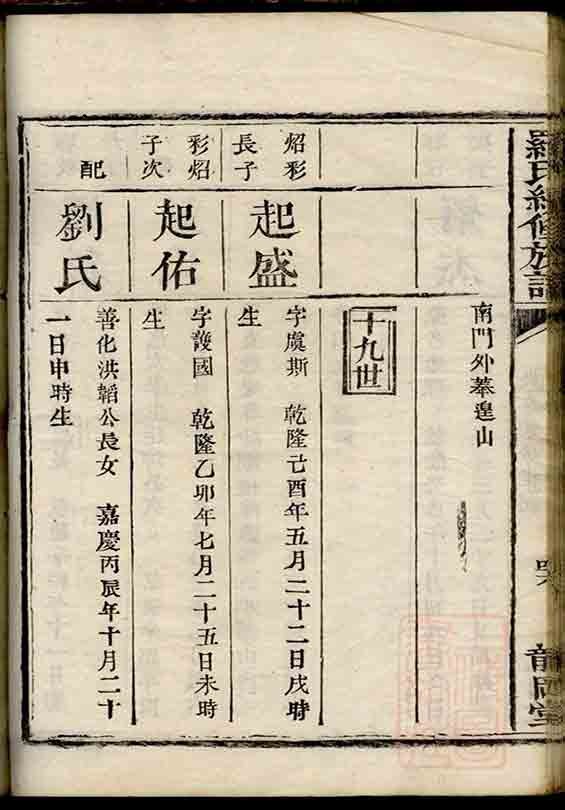 羅氏續修族譜
南門外莽遑山
十九世
炤彩
長子
起盛
字虞斯 乾隆己酉年五月二十二日戌時
生
彩炤
子次
起佑
字護國 乾隆乙卯年七月二十五日未時
生
配
劉氏
善化洪韜公長女 嘉慶丙辰年十月二十
一日申時生